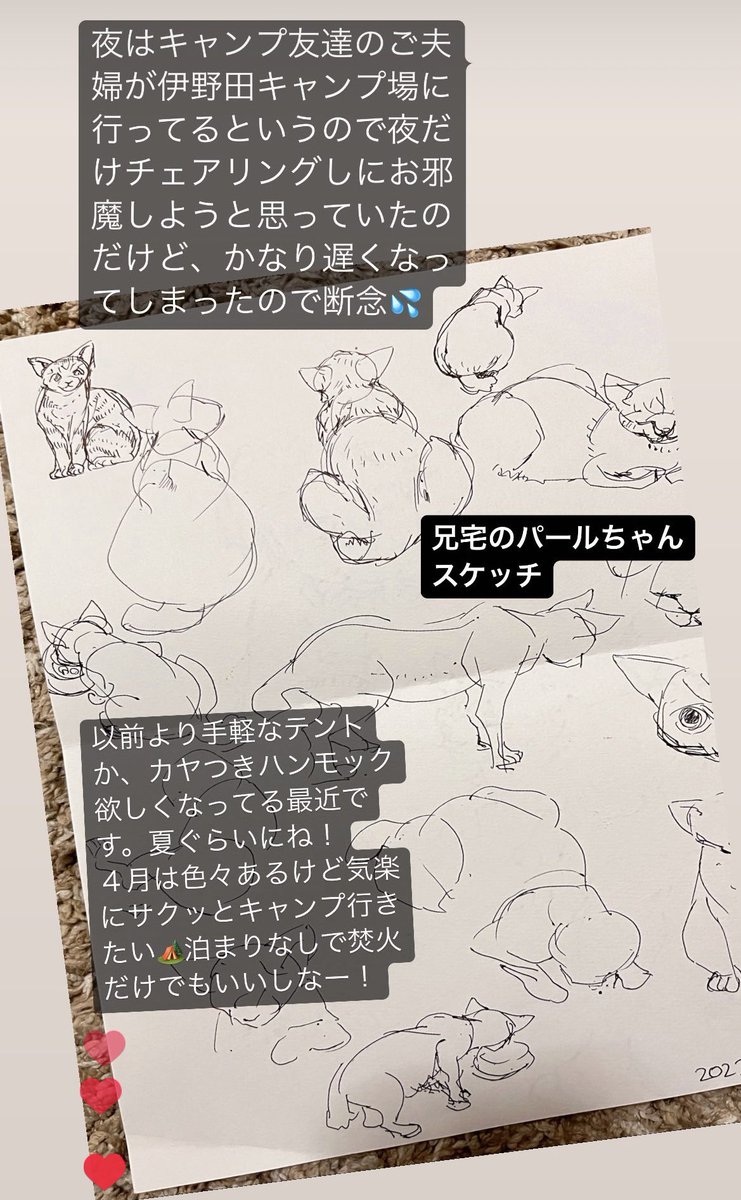 夜はキャンプ友達のご夫
婦が伊野田キャンプ場に
行ってるというので夜だ
けチェアリングしにお邪
魔しようと思っていたの
だけど、かなり遅くなっ
てしまったので断念💦
兄宅のパールちゃん
スケッチ
以前より手軽なテント
か、カヤつきハンモック
欲しくなってる最近で
す。夏ぐらいにね！
４月は色々あるけど気楽
にサクッとキャンプ行き
たい🏕️泊まりなしで焚火
だけでもいいしなー！